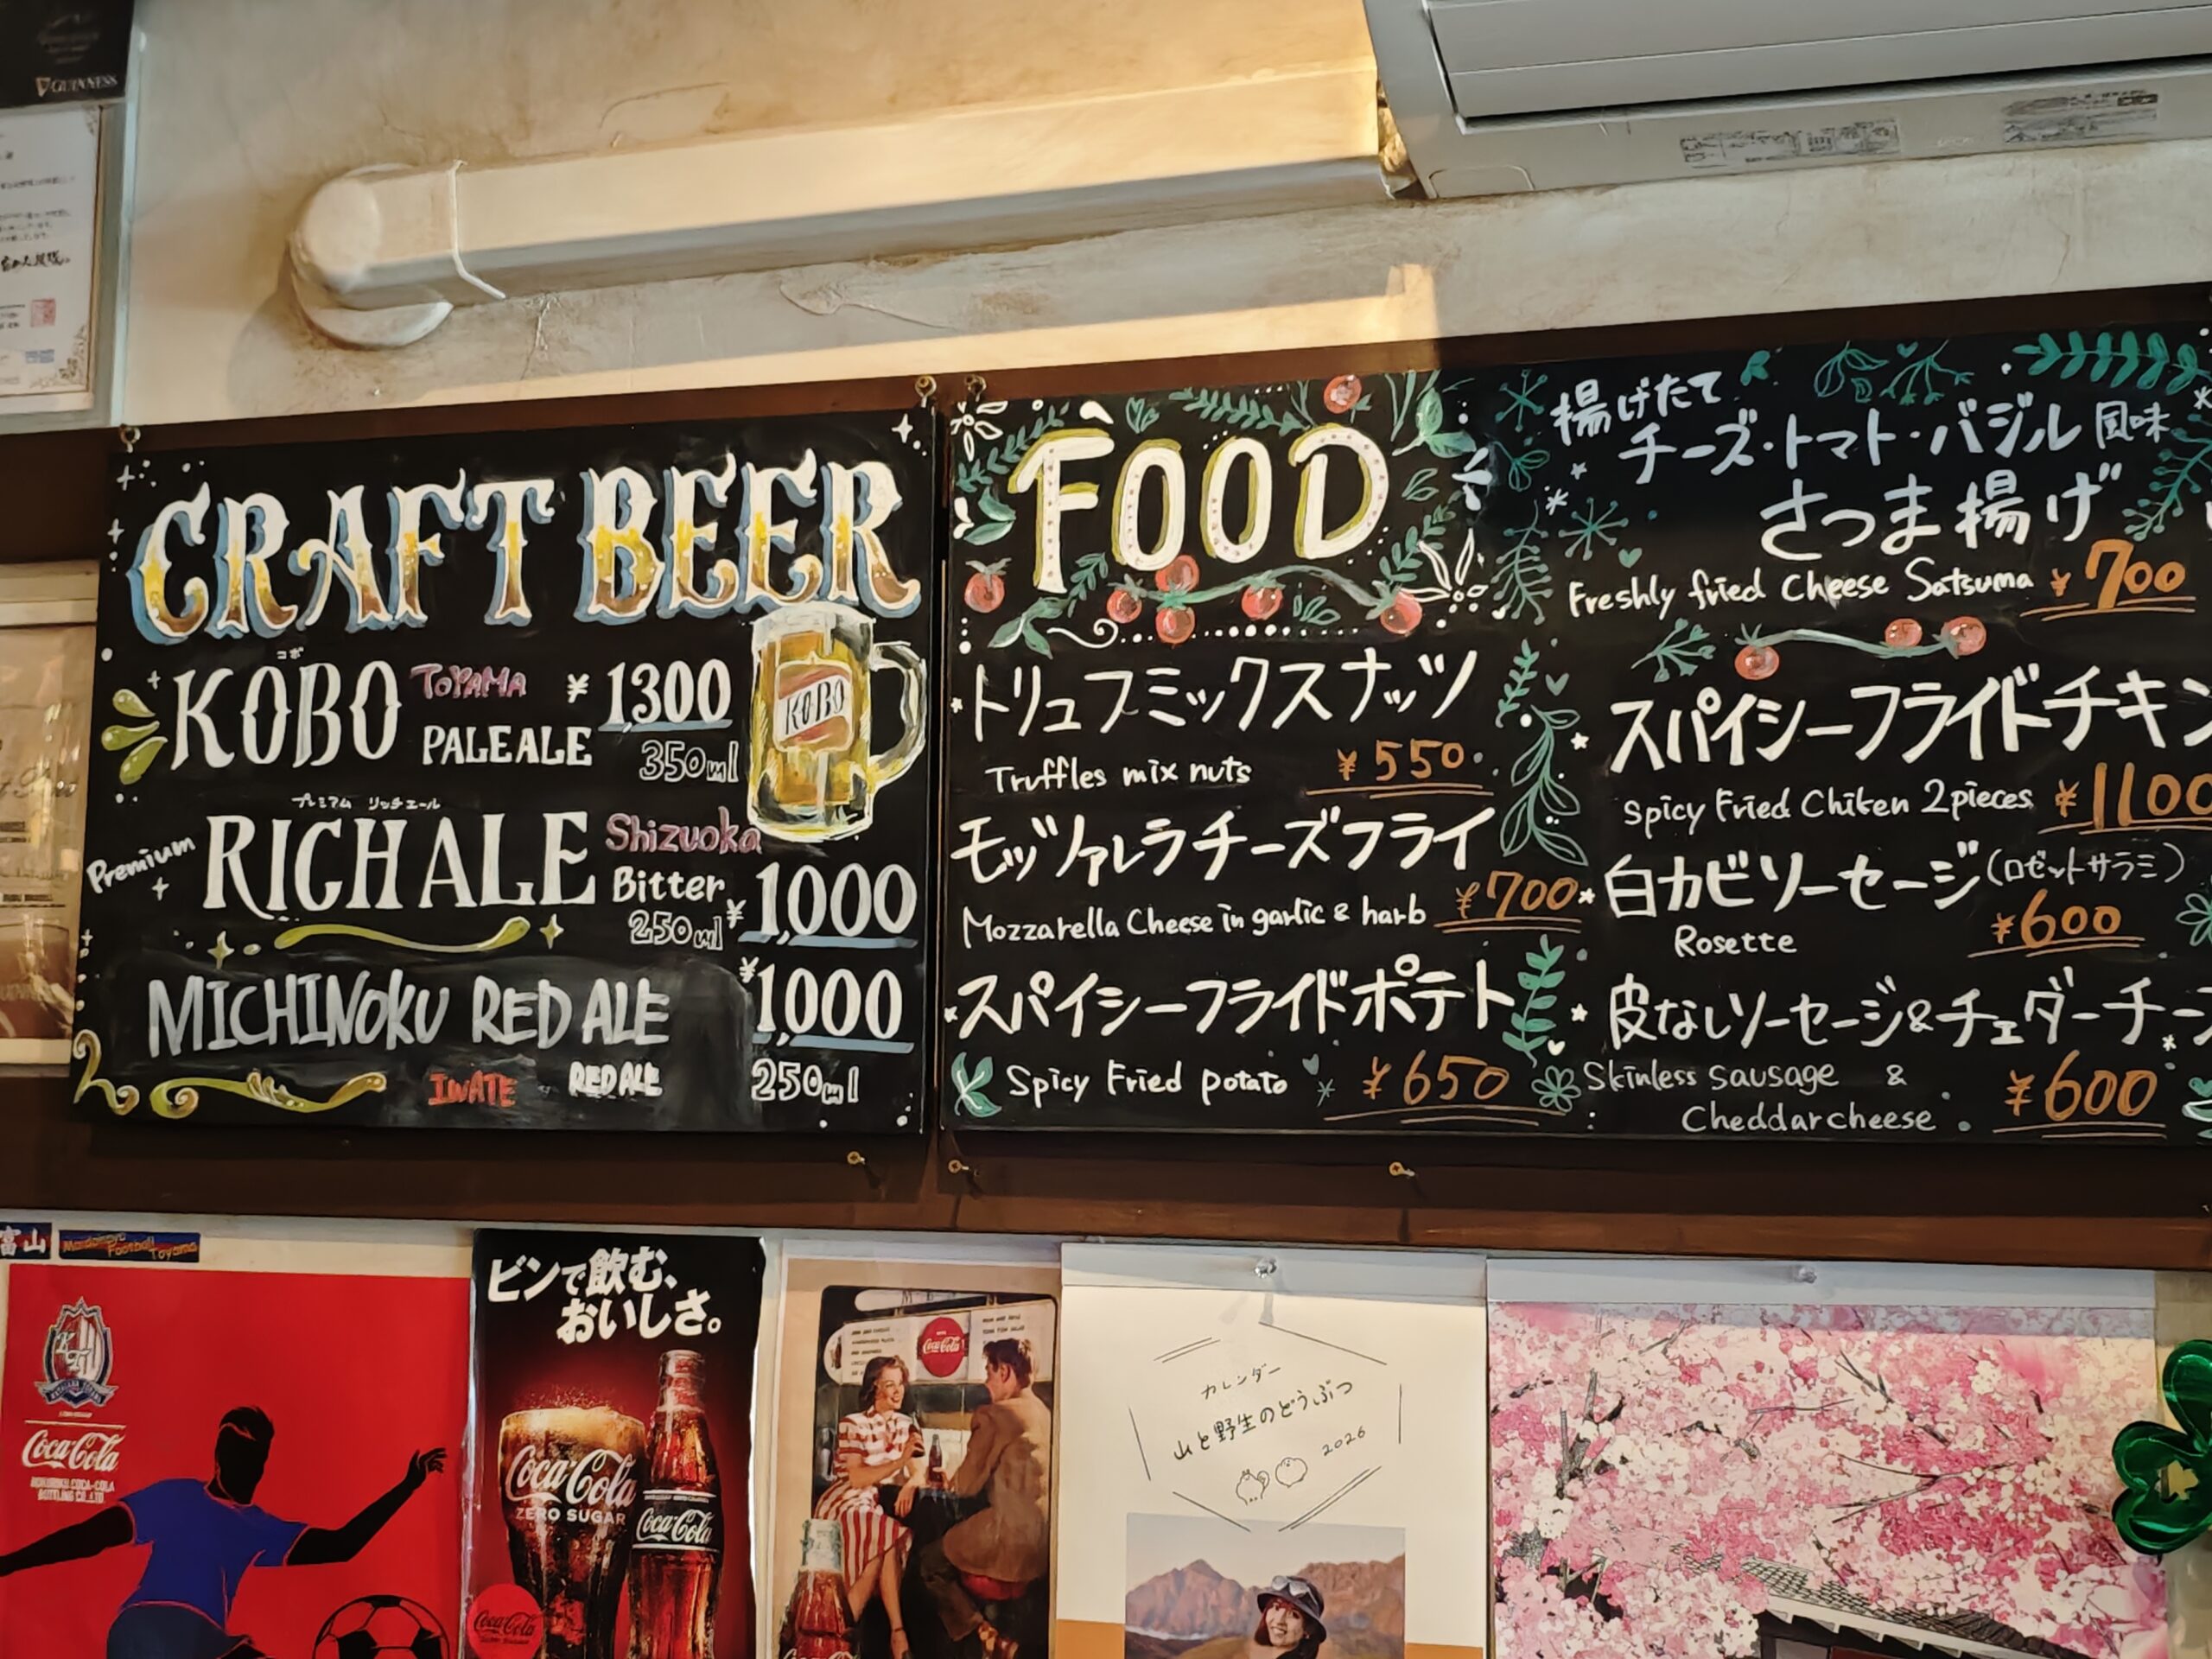 GUINNESS
CRAFT BEER
コボ
KOBO TOYAMA ¥1300
PALE ALE 350ml
KOBO
プレミアム リッチエール
Premium RICH ALE Shizuoka
Bitter ¥1,000
250ml
MICHINOKU RED ALE ¥1,000
IWATE RED ALE 250ml
FOOD
トリュフミックスナッツ
Truffles mix nuts ¥550
モッツァレラチーズフライ
Mozzarella Cheese in garlic & harb ¥700
スパイシーフライドポテト
Spicy Fried potato ¥650
揚げたて
チーズ・トマト・バジル風味
さつま揚げ
Freshly fried Cheese Satsuma ¥700
スパイシーフライドチキン
Spicy Fried Chiken 2pieces ¥1100
白カビソーセージ(ロゼットサラミ)
Rosette ¥600
皮なしソーセージ&チェダーチー
Skinless sausage &
Cheddarcheese ¥600
富山
Football Toyama
Coca-Cola
HOKURIKU COCA-COLA
BOTTLING CO.,LTD
ビンで飲む、
おいしさ。
Coca-Cola
ZERO SUGAR
Coca-Cola
Coca-Cola
Coca-Cola
Coca-Cola
カレンダー
山と野生のどうぶつ
2026